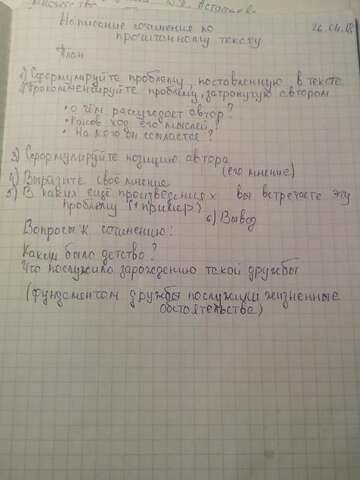 Написание сочинения по
прочитанному тексту
План
1) Сформулируйте проблему, поставленную в тексте
2) Прокомментируйте проблему, затронутую автором
• О чём рассуждает автор?
• Каков ход его мыслей
• На кого он ссылается?
3) Сформулируйте позицию автора
(его мнение)
4) Выразите своё мнение
5) В каких ещё произведениях вы встречаете эту
проблему (1 пример)
6) Вывод
Вопросы к сочинению:
Каким было детство?
Что послужило зарождению такой дружбы
(Фундаментом дружбы послужили жизненные
обстоятельства)